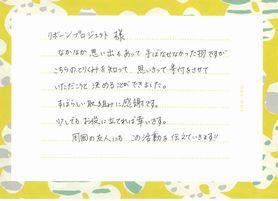 リボーンプロジェクト 様
なかなか思い出もあって手ばなせなかった物ですが
こちらのとりくみを知って、思いきって寄付をさせて
いただこうと決めることができました。
すばらしい取り組みに感謝です。
少しでもお役に立てれば幸いです。
周囲の友人にも この活動を伝えていきます!!